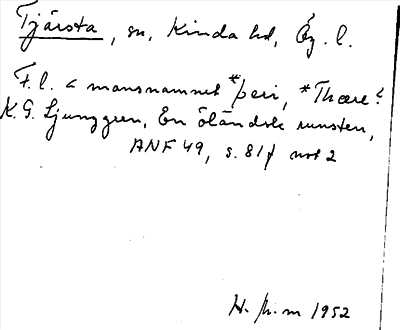 Tjärsta, sn, Kinda hd, Ög. l.
F. l. < mansnamnet *þeri, *Thære?
K. G. Ljunggren, En öländsk runsten,
ANF 49, s. 81f not 2
1952